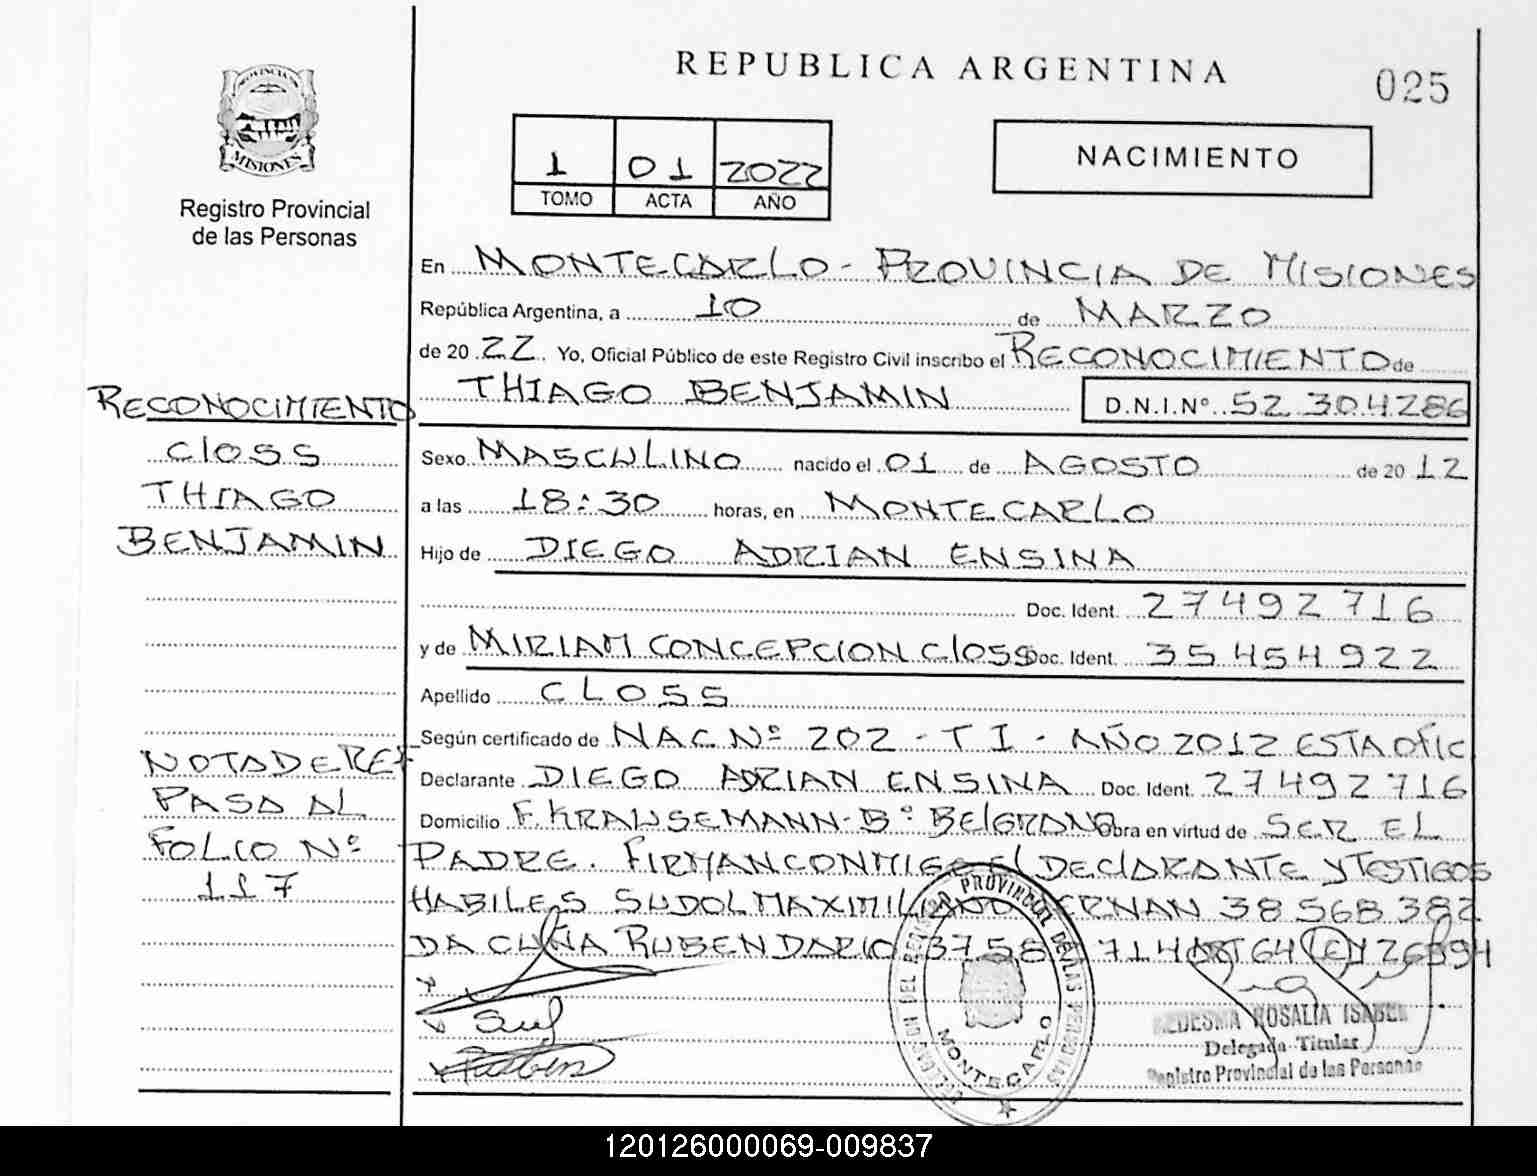 REPUBLICA ARGENTINA
025
PROVINCIA DE
MISIONES
Registro Provincial
de las Personas
1 01 2022
TOMO ACTA AÑO
NACIMIENTO
En MONTECARLO - PROVINCIA DE MISIONES
República Argentina, a 10 de MARZO
de 20 22 Yo, Oficial Público de este Registro Civil inscribo el RECONOCIMIENTO de
THIAGO BENJAMIN D.N.I.Nº 52 304286
RECONOCIMIENTO
Closs
THIAGO
BENJAMIN
Sexo MASCULINO nacido el 01 de AGOSTO de 20 12
a las 18:30 horas, en MONTECARLO
Hijo de DIEGO ADRIAN ENSINA
Doc. Ident. 27492716
y de MIRIAM CONCEPCION Closs Doc. Ident. 35454922
Apellido CLOSS
Según certificado de NAC Nº 202 - T I - AÑO 2012 ESTA OFIC
Declarante DIEGO ADRIAN ENSINA Doc. Ident. 27492716
Domicilio F. KRAUSEMANN - Bº BElGRANO Obra en virtud de SER EL
PADRE. FIRMAN CONMIGO El DEClARANTE Y TESTIGOS
HABILES SUDOL MAXIMILIANO 38 568 382
DA CUÑA RUBEN DARIO ART 64 LEY
NOTA DE REF
PASA AL
FOLIO Nº
117
MONTECARLO
ROSALIA ISABEL
Delegada Titular
Registro Provincial de las Personas
120126000069-009837